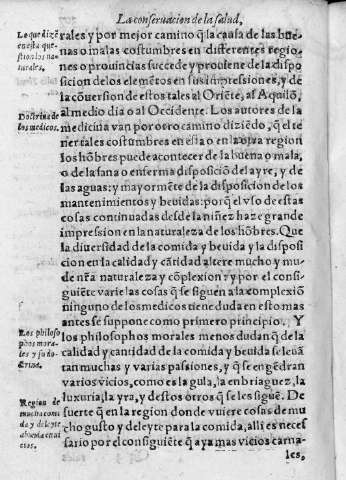 La conseruacion de la salud,
Lo que dizẽ
en esta que-
stion los na-
turales.
rales y por mejor camino q̃ la causa de las bue
nas o malas costumbres en differentes regio-
nes o prouincias succede y prouiene de la dispo
sicion de los elemẽtos en sus impressiones, y de
la cõuersion de estos tales al Oriẽte, al Aquilõ,
al medio dia o al Occidente. Los autores de la
Doctrina de
los medicos.
medicina van por otro camino diziẽdo, q̃ el te
ner tales costumbres en esta o en la otra region
los hõbres puede acontecer de la buena o mala,
o de la sana o enferma disposiciõ del ayre, y de
las aguas; y mayormẽte de la disposicion de los
mantenimientos y beuidas: porq̃ el vso de estas
cosas continuadas desde la niñez haze grande
impression en la naturaleza de los hõbres. Que
la diuersidad de la comida y beuida y la disposi
cion en la calidad y cãtidad altere mucho y mu-
de nr̃a naturaleza y cõplexion: y por el consi-
guiẽte varie las cosas q̃ se siguen a la complexiõ
ninguno de los medicos tiene duda en esto mas
antes se suppone como primero principio. Y
Los philoso
phos mora-
les y su do-
ctrina.
los philosophos morales menos dudan q̃ de la
calidad y cantidad de la comida y beuida se leuã
tan muchas y varias passiones, y q̃ se engẽdran
varios vicios, como es la gula, la enbriaguez, la
luxuria, la yra, y destos otros q̃ se les siguẽ. De
Region de
mucha comi
da y deleyte
abunda en vi
cios.
suerte q̃ en la region donde vuiere cosas de mu
cho gusto y deleyte para la comida, alli es neces
sario por el consiguiẽte q̃ aya mas vicios carna-
les,